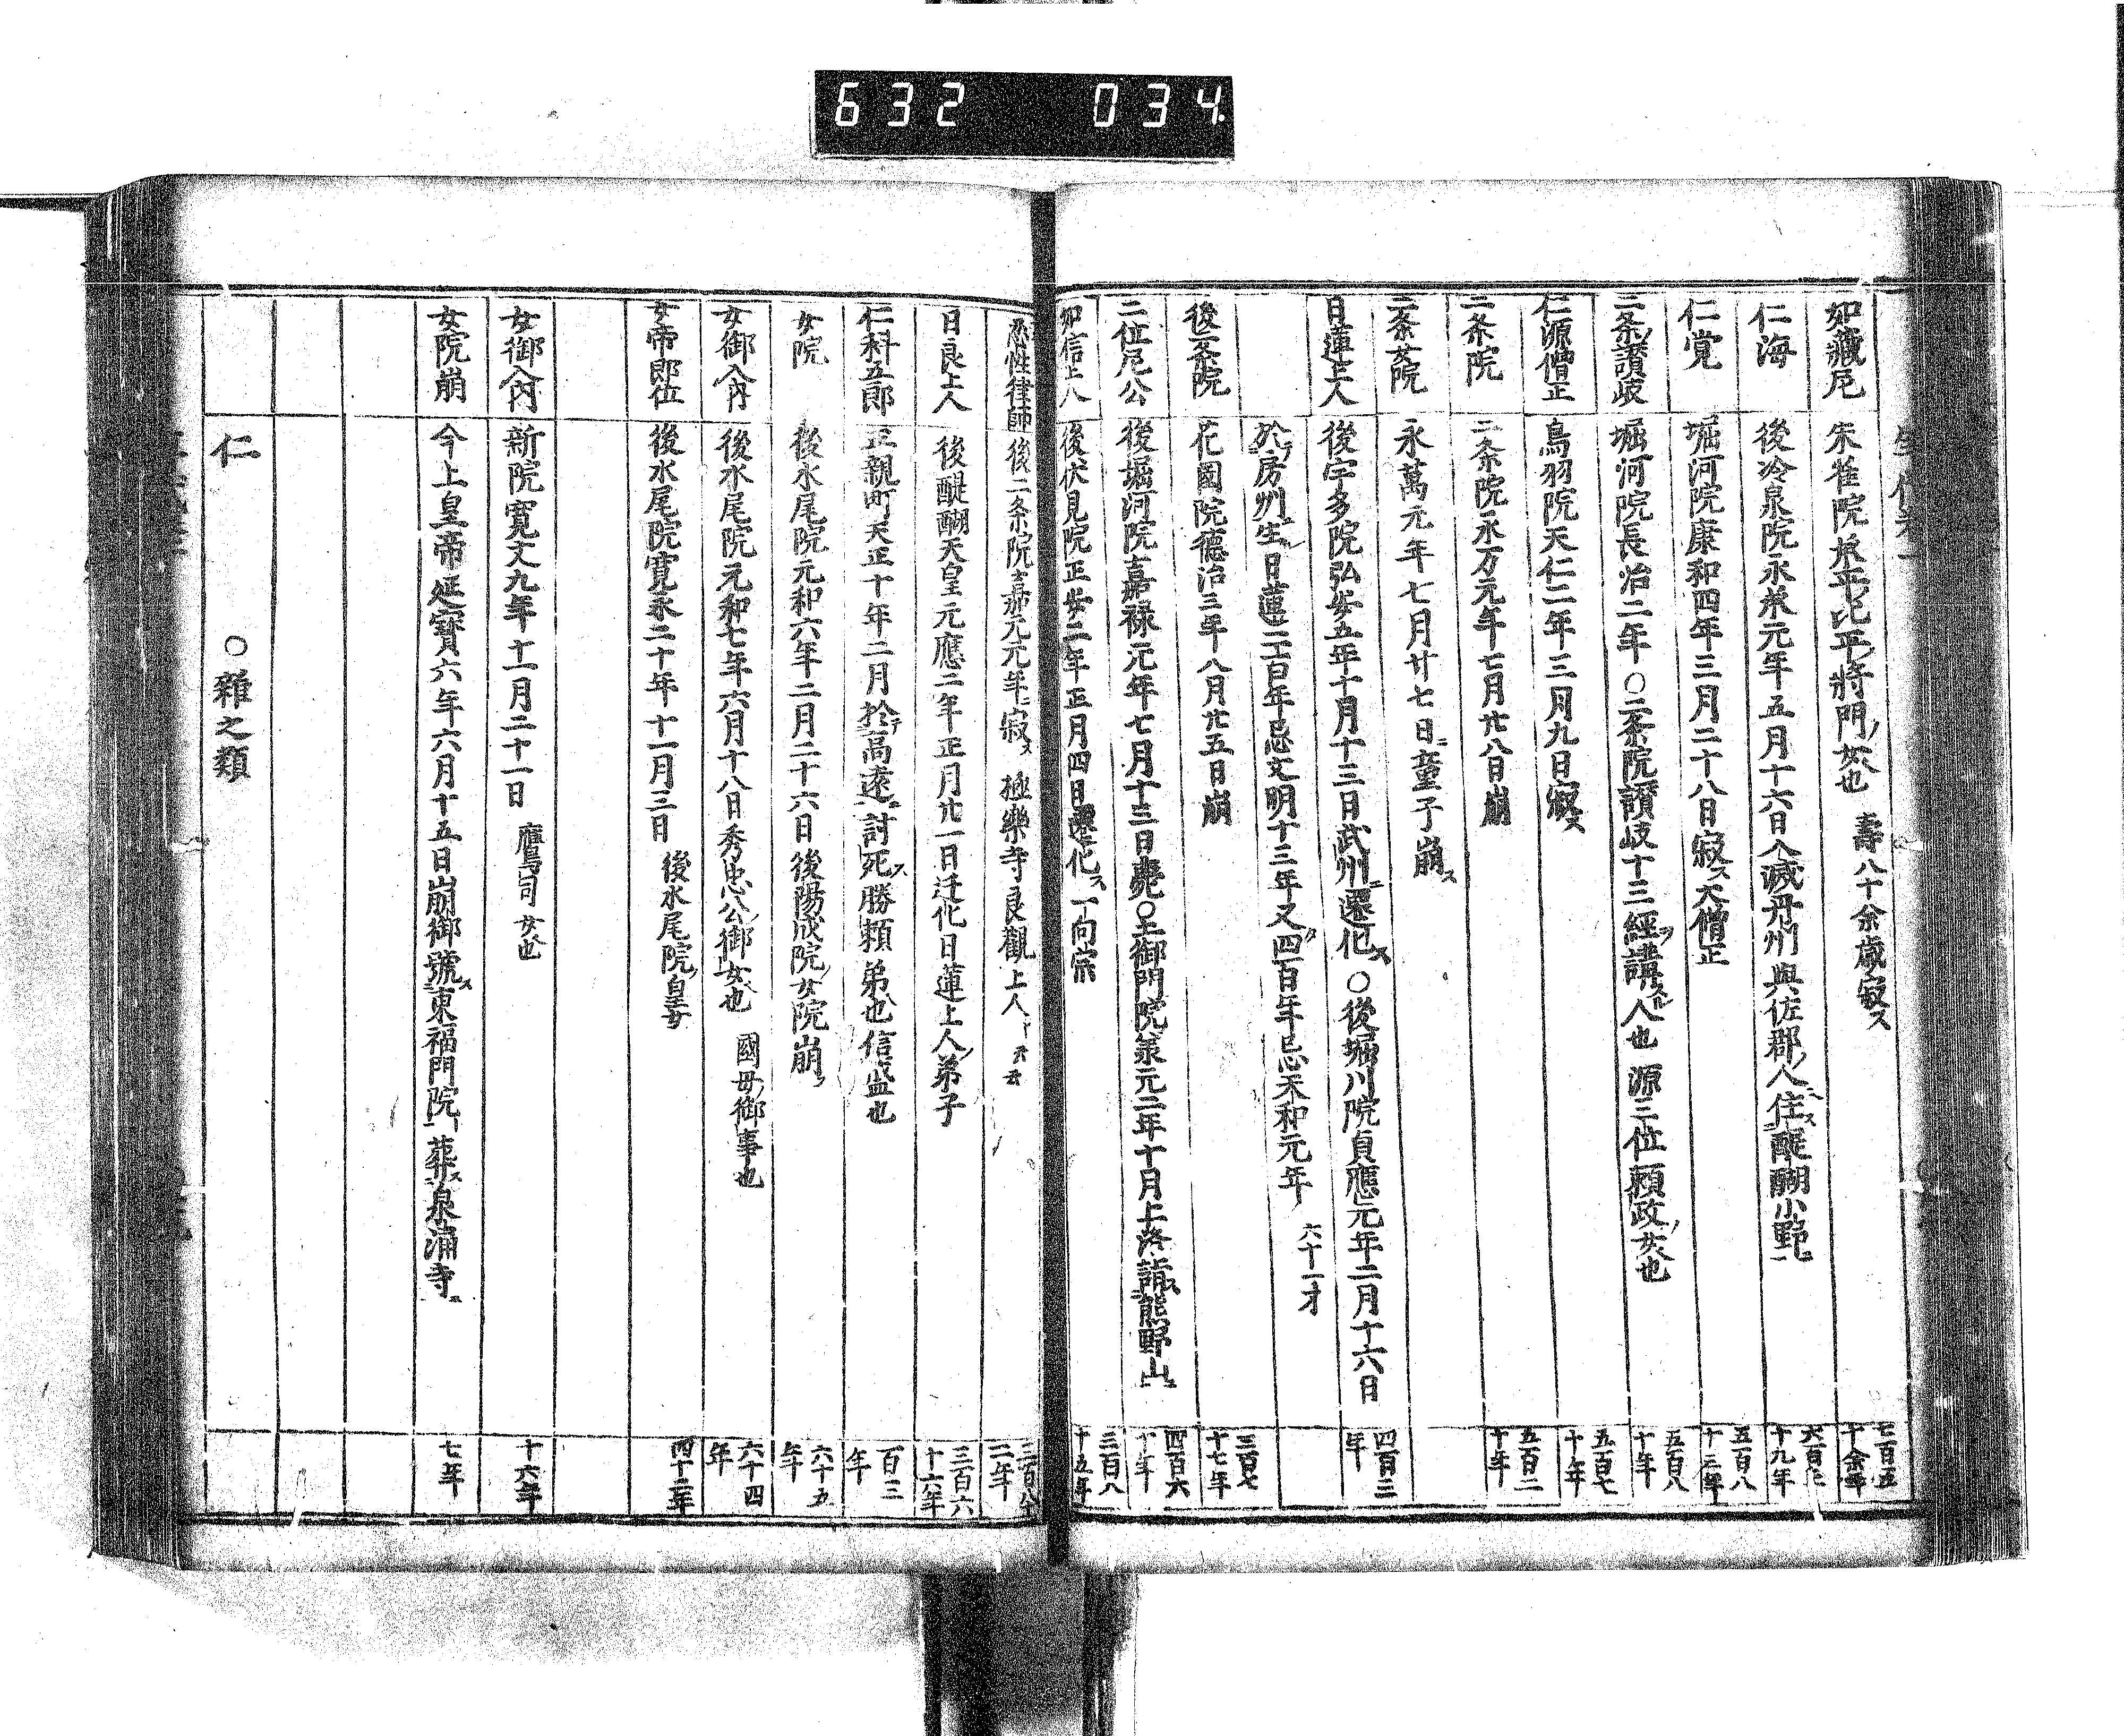 632 034
如蔵尼 朱雀院承平比平ノ將門ノ女也 壽八十余歳寂ス 七百五十余年
仁海 後冷泉院永承元年五月十六日入滅丹州與佐郡ノ人ニハス住醍醐小野ニ 六百七十九年
仁覚 堀河院康和四年三月二十八日寂ス大僧正 五百八十三年
二条ノ讃岐 堀河院長治二年〇二条院讃岐十三經ヲ講スル人也 源三位頼政ノ女也 五百八十年
仁源僧正 鳥羽院天仁二年三月九日寂ス 五百七十七年
二条院 二条院永万元年七月廿八日崩 五百二十年
二条女院 永萬元年七月廿七日ニ童子崩ス
日蓮上人 後宇多院弘安五年十月十三日武州ニ遷化ス 〇後堀川院貞應元年二月十六日 四百三年
於テ房州ニ生ル日蓮二百年忌文明十三年又四百年忌天和元年 六十一才
後二条院 花園院德治三年八月廿五日崩 三百七十七年
二位尼公 後堀河院嘉禄元年七月十三日薨〇土御門院承元二年十月上洛詣ス熊野山ニ 四百六十年
如信上人 後伏見院正安二年正月四日遷化ス 一向宗 三百八十五年
忍性律師 後二条院嘉元元年ニ寂ス 極樂寺良觀上人ト云云 三百八十二年
日良上人 後醍醐天皇元應二年正月廿一日迁化日蓮上人ノ弟子 三百六十六年
仁科五郎 正親町天正十年二月於テ高遠ニ討死ス勝頼弟也信盛也 百三年
女院 後水尾院元和六年二月二十六日後陽成院ノ女院崩ス 六十五年
女御入内 後水尾院元和七年六月十八日秀忠公ノ御女也 國母ノ御事也 六十四年
女帝即位 後水尾院寛永二十年十一月三日 後水尾院ノ皇女 四十二年
女御入内 新院寛文九年十一月二十一日 鷹司女也 十六年
女院崩 今上皇帝延寳六年六月十五日崩御號ス東福門院ト葬ス泉涌寺ニ 七年
仁 〇雜之類